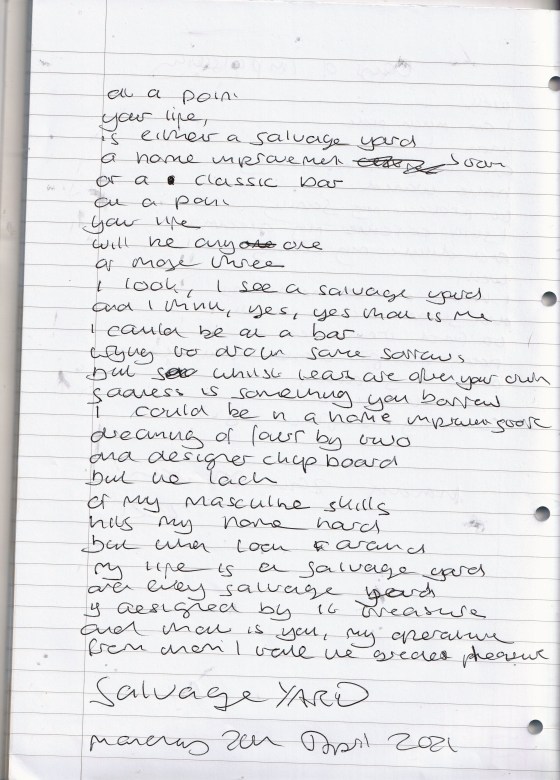 at a point
your life,
is either a salvage yard
a home improvement store
or a classic bar
at a point
your life
will be any one
of those three
I look, I see a salvage yard
and I think, yes, yes that is me
I could be at a bar
trying to drown some sorrows
but whilst tears are often your own
sadness is something you borrow
I could be in a home improvement store
dreaming of four by two
and designer chipboard
but the lack
of my masculine skills
hits my home hard
but when I look around
my life is a salvage yard
and every salvage yard
is designed by its treasure
and that is you, my
from whom I take the greatest pleasure
Salvage YARD
20th April 2021